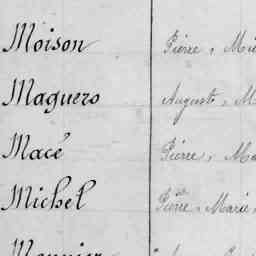 Moison Pierre, Mi
Maguero August, M
Macé Pierre, Ma
Michel Pierre, Marie,